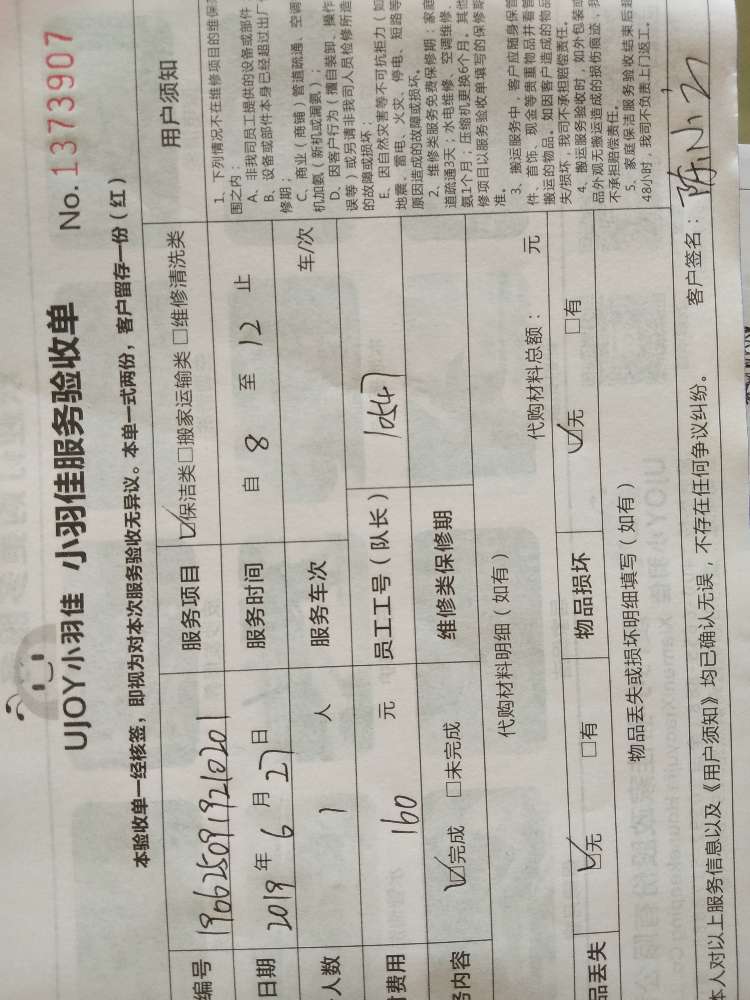 UJOY小羽佳 小羽佳服务验收单 No.1373907
本验收单一经核签，即视为对本次服务验收无异议。本单一式两份，客户留存一份（红）
编号 1906250919210201 服务项目 ☑保洁类□搬家运输类 □维修清洗类
日期 2019 年 6 月 27 日 服务时间 自 8 至 12 止
人数 1 人 服务车次 车/次
费用 160 元 员工工号（队长）
务内容 ☑完成 □未完成 维修类保修期
代购材料明细（如有） 代购材料总额： 元
品丢失 ☑无 □有 物品损坏 ☑无 □有
物品丢失或损坏明细填写（如有）
本人对以上服务信息以及《用户须知》均已确认无误，不存在任何争议纠纷。 客户签名：
用户须知
1、下列情况不在维修项目的维保范
围之内：
A、非我司员工提供的设备或部件
B、设备或部件本身已经超过出厂
修期；
C、商业（商铺）管道疏通、空调
机加氨（新机或漏氨）；
D、因客户行为（擅自装卸、操作
误等）或另请非我司人员检修所造
的故障或损坏；
E、因自然灾害等不可抗拒力（如
地震、雷电、火灾、停电、短路等
原因造成的故障或损坏。
2、维修类服务免费保修期：家庭
道疏通3天；水电维修、空调维修、
氨1个月；压缩机更换6个月。其他
修项目以服务验收单填写的保修期
准。
3、搬运服务中，客户应随身保管
件、首饰、现金等贵重物品并看管
搬运的物品。如因客户造成的物品
失/损坏，我司不承担赔偿责任。
4、搬运服务验收时，如外包装或
品外观无搬运造成的损伤痕迹，我
不承担赔偿责任。
5、家庭保洁服务验收结束后超
48小时，我司不负责上门返工。